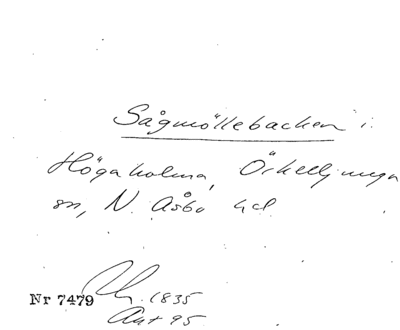 Sågmöllebacken i
Högaholma, Örkelljunga
sn, N. Åsbo hd
Nr 7479
1835
Ant 95